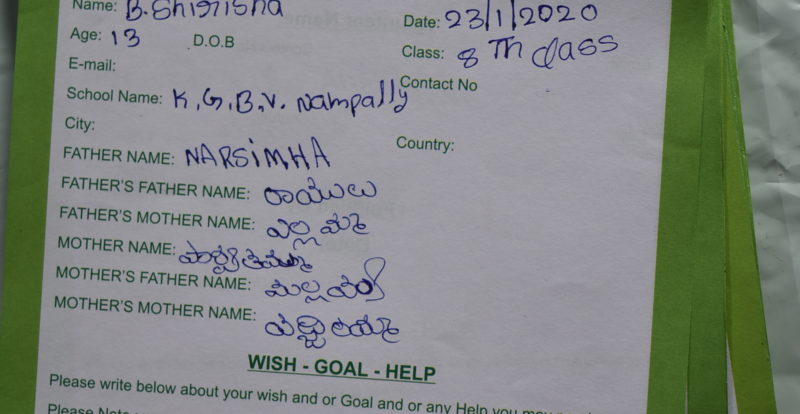 Name: B. Shirisha
Date: 23/1/2020
Age: 13 D.O.B
Class: 8 Th class
E-mail:
Contact No
School Name: K.G.B.V. Nampally
City:
Country:
FATHER NAME: NARSiMHA
FATHER'S FATHER NAME: రాములు
FATHER'S MOTHER NAME: ఎల్లమ్మ
MOTHER NAME: పార్వతమ్మ
MOTHER'S FATHER NAME:
MOTHER'S MOTHER NAME:
WISH - GOAL - HELP
Please write below about your wish and or Goal and or any Help you may
Please Note